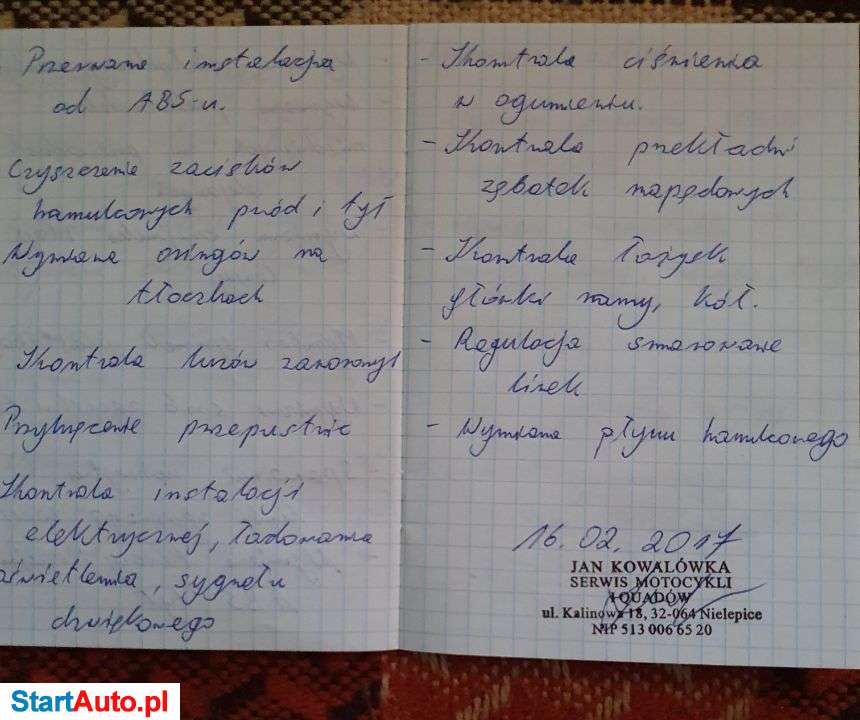 Przerwana instalacja
od ABS-u.
Czyszczenie zacisków
hamulcowych przód i tył
Wymiana oringów na
tłoczkach
Kontrola luzów zaworowych
Przykręcenie przepustnic
Kontrola instalacji
elektrycznej, ładowania
oświetlenia, sygnału
dźwiękowego
- Kontrola ciśnienia
w ogumieniu.
- Kontrola przekładni
zębatek napędowych
- Kontrola łożysk
główki ramy, kół.
- Regulacja smarowanie
linek
- Wymiana płynu hamulcowego
16.02.2017
JAN KOWALÓWKA
SERWIS MOTOCYKLI
I QUADÓW
ul. Kalinowa 18, 32-064 Nielepice
NIP 513 006 65 20
StartAuto.pl